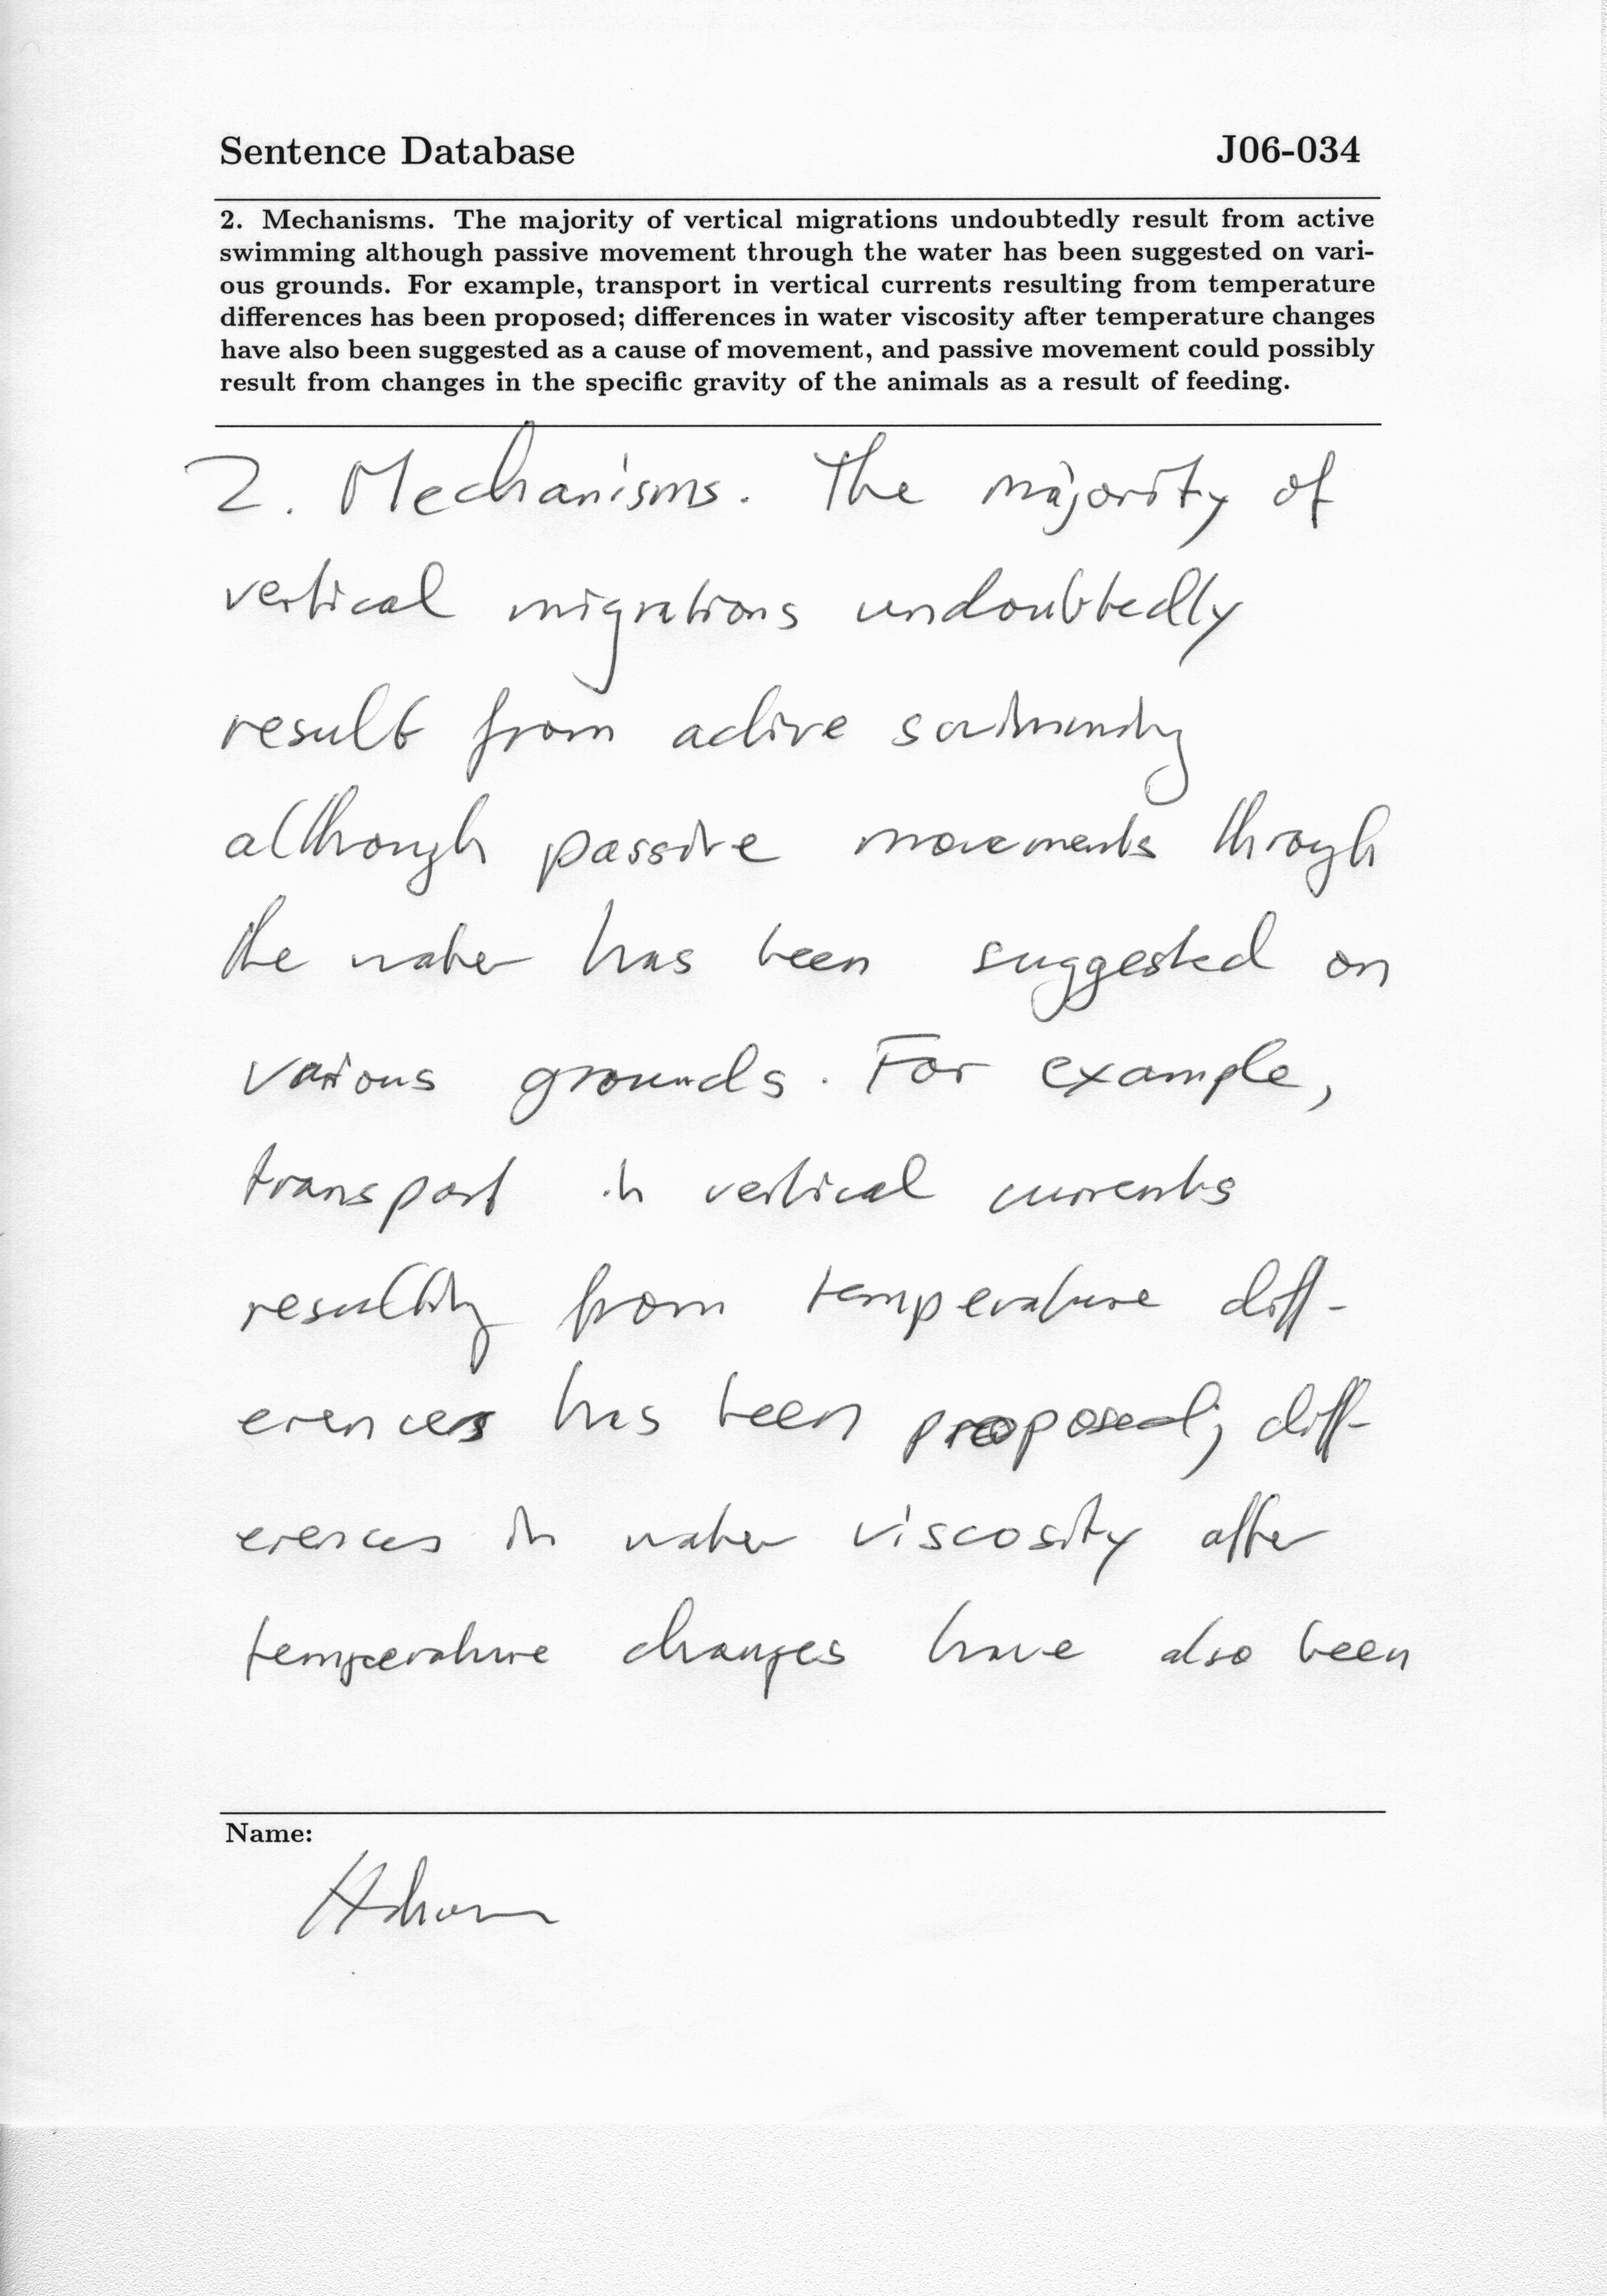 Sentence Database J06-034
2. Mechanisms. The majority of vertical migrations undoubtedly result from active
swimming although passive movement through the water has been suggested on vari-
ous grounds. For example, transport in vertical currents resulting from temperature
differences has been proposed; differences in water viscosity after temperature changes
have also been suggested as a cause of movement, and passive movement could possibly
result from changes in the specific gravity of the animals as a result of feeding.
2. Mechanisms. The majority of
vertical migrations undoubtedly
result from active swimming
although passive movements through
the water has been suggested on
various grounds. For example,
transport in vertical currents
resulting from temperature diff-
erences has been proposed; diff-
erences in water viscosity after
temperature changes have also been
Name: